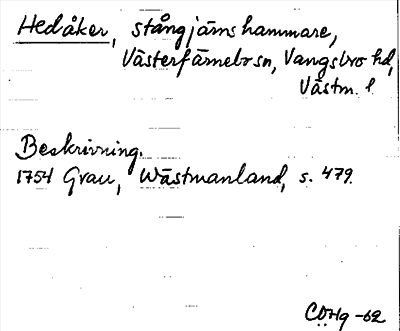 Hedåker, stångjärnshammare,
Västerfärnebo sn, Vangsbro hd,
Västm. l
Beskrivning.
1754 Grau, Wästmanland, s. 479.
CÖHg -62